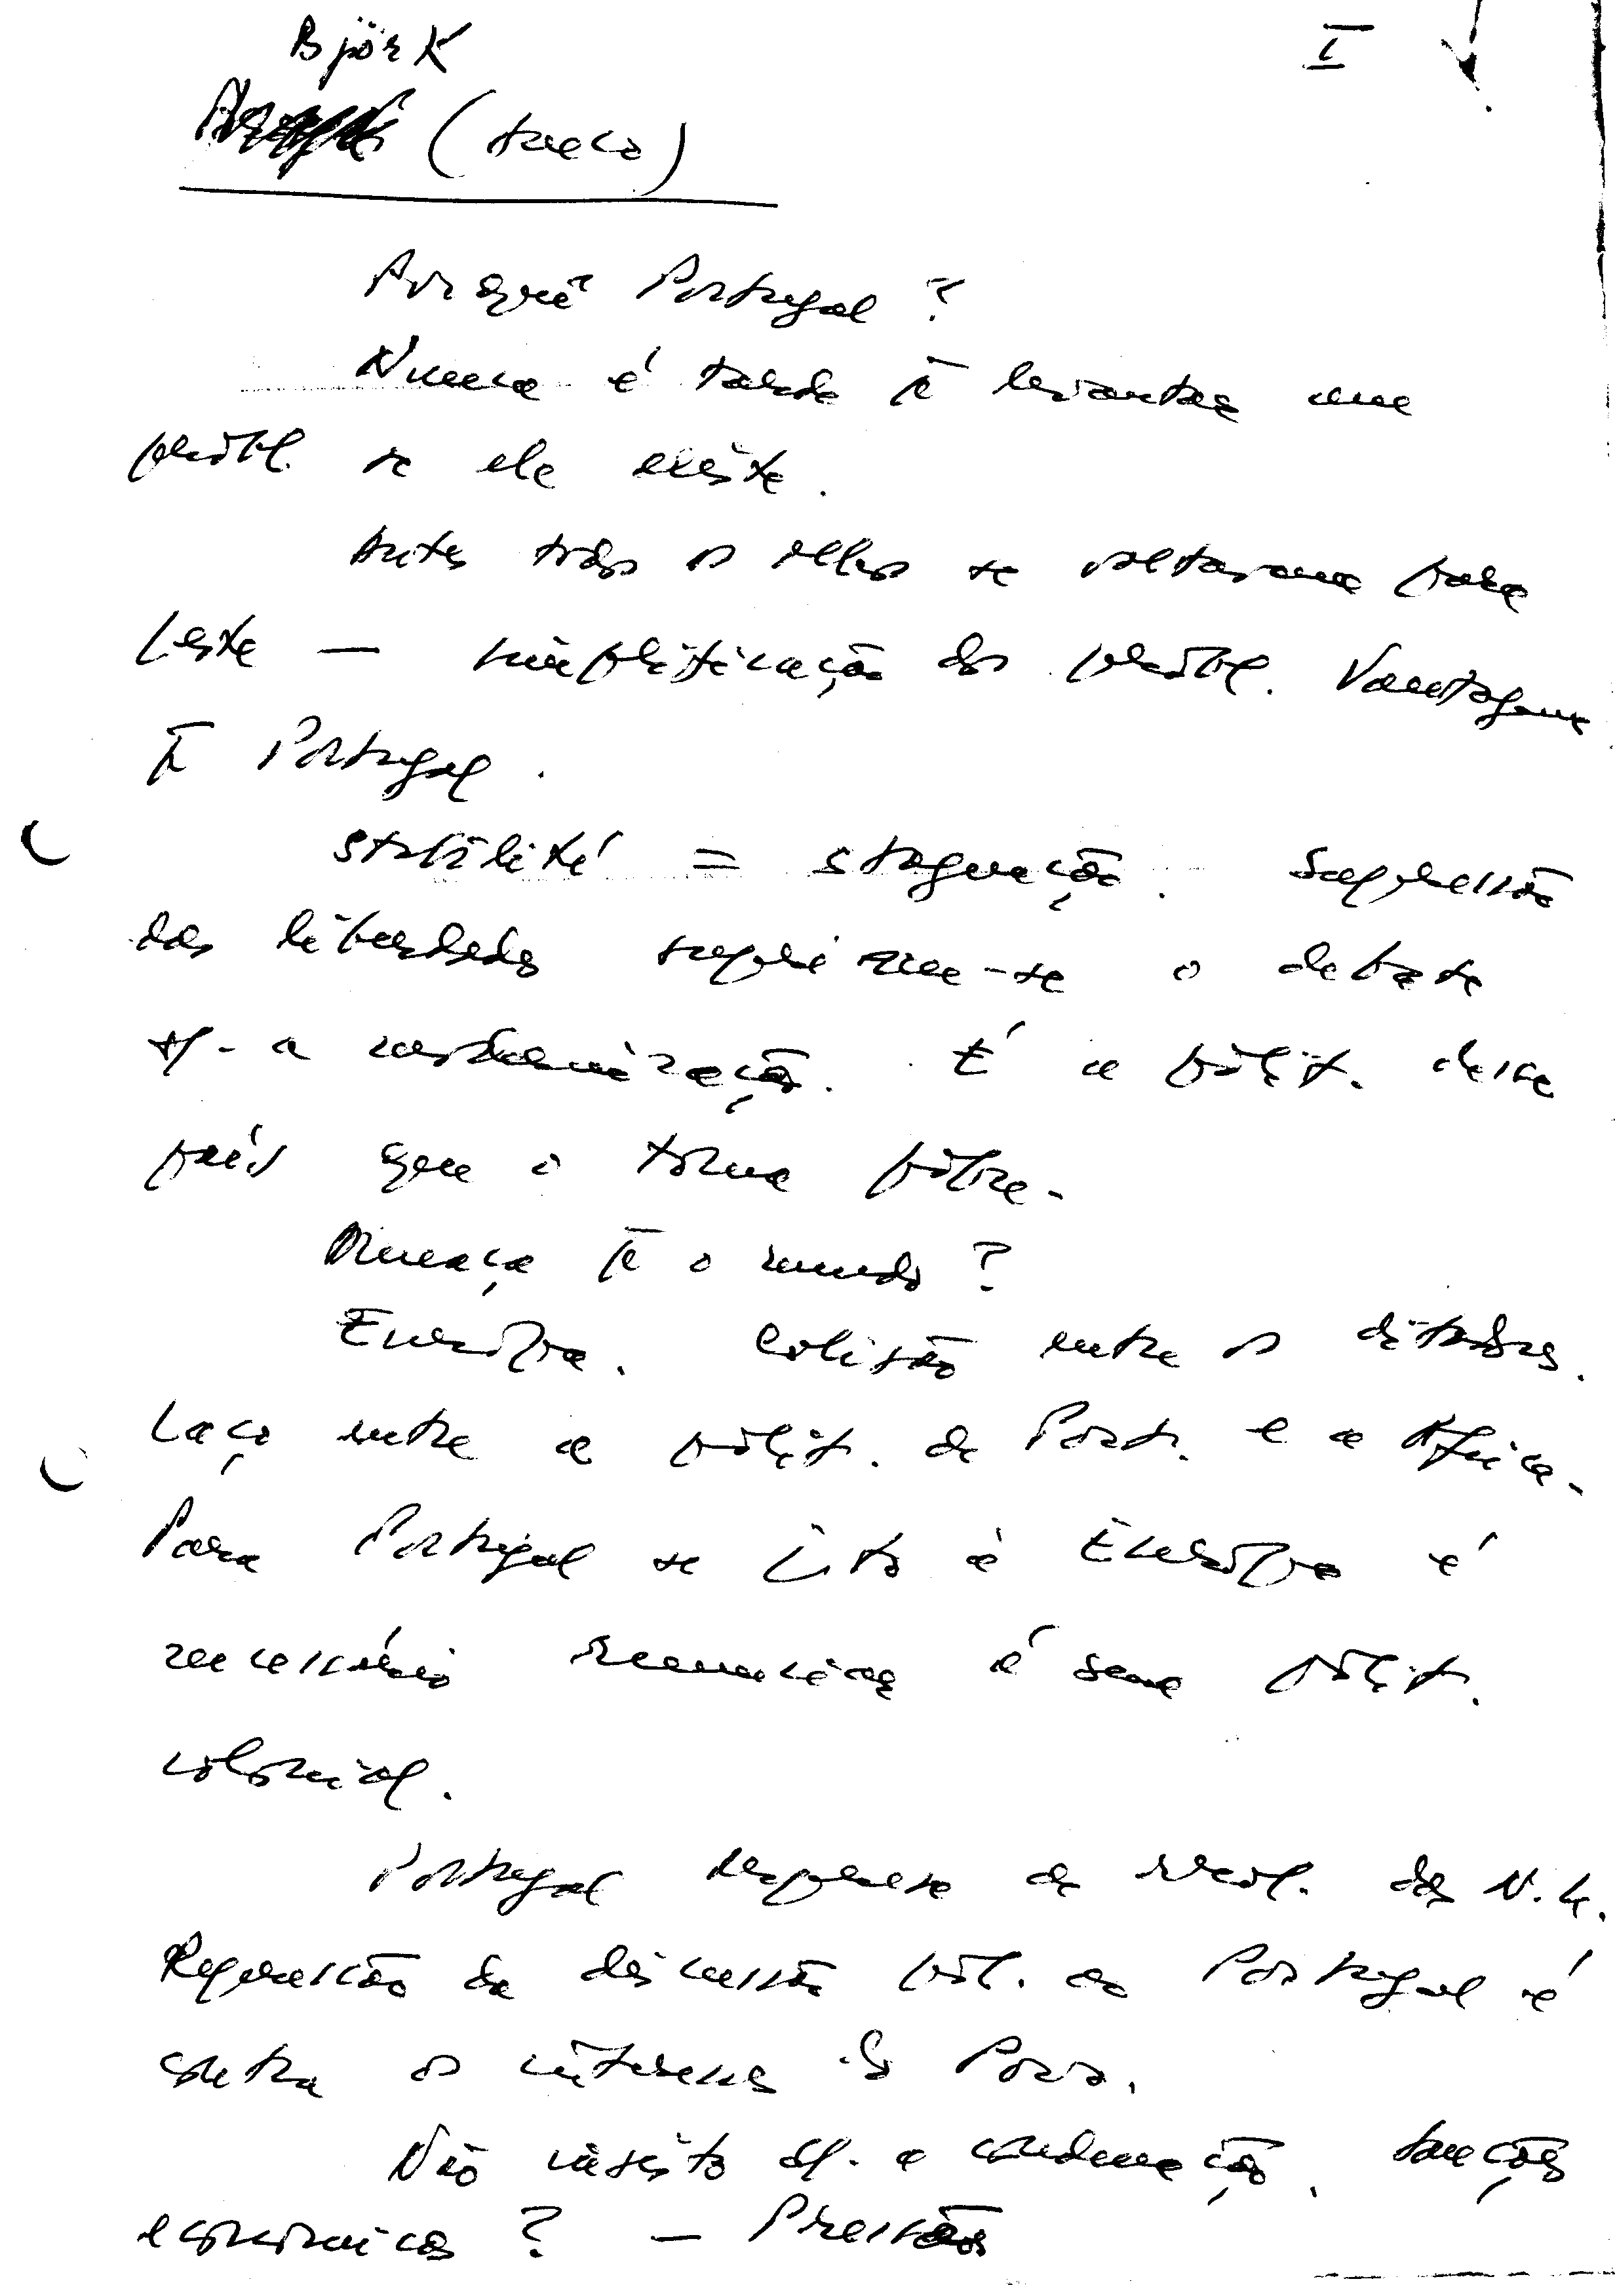 Björk
I
(sueco)
Porquê Portugal?
Nunca é tarde p̄ levantar um
probl. se ele existe.
Antes todos os olhos se voltaram para
Leste — simplificação dos probl. Vantagem
p̄ Portugal.
Stabilité = stagnação. Supressão
das liberdades suprime-se o debate
s/. a modernização. É a polít. desse
país que o torna pobre.
Ameaça p̄ o mundo?
Europa. Colisão entre os ditadores.
Laço entre a polít. de Port. e a Africa.
Para Portugal se à Europa é
necessário renunciar à sua polít.
colonial.
Portugal resol. das N.U.
Repressão da discussão pol. em Portugal é
contra os interesses do Povo.
Não insisto s/. a condenação. Sanções
economicas? — Pressões